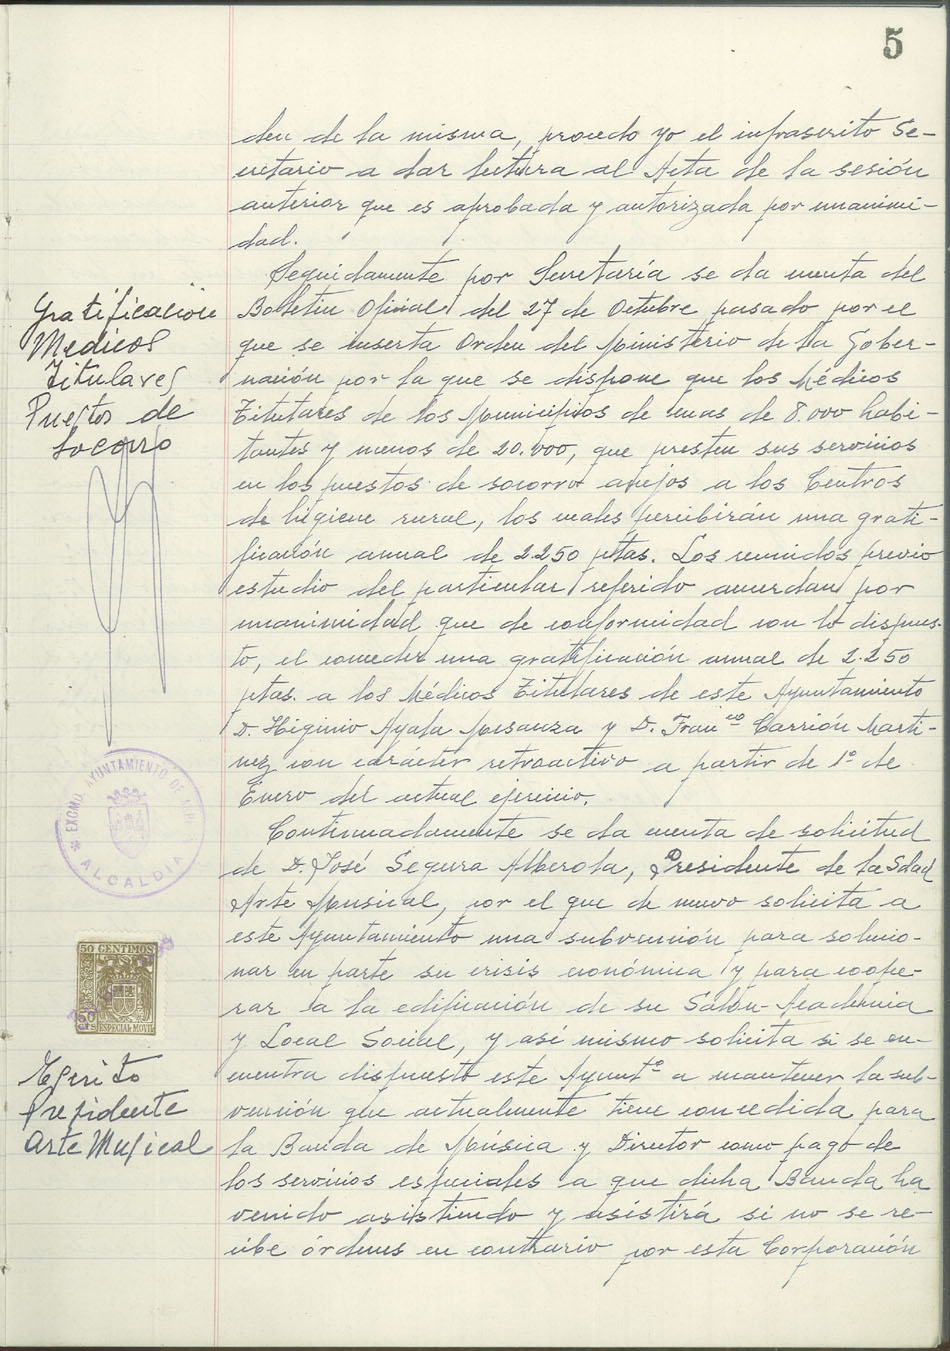 5
den de la misma, procedo yo el infrascrito Se-
cretario a dar lectura al Acta de la sesión
anterior que es aprobada y autorizada por unanimi-
dad.
Seguidamente por Secretaría se da cuenta del
Boletín Oficial del 27 de Octubre pasado por el
que se inserta Orden del Ministerio de la Gober-
nación por la que se dispone que los Médicos
Titulares de los Municipios de mas de 8.000 habi-
tantes y menos de 20.000, que presten sus servicios
en los puestos de socorro anejos a los Centros
de higiene rural, los cuales percibirán una grati-
ficación anual de 2.250 ptas. Los reunidos previo
estudio del particular referido acuerdan por
unanimidad que de conformidad con lo dispues-
to, el conceder una gratificación anual de 2.250
ptas. a los Médicos Titulares de este Ayuntamiento
D. Higinio Ayala Mesanza y D. Francº Carrión Marti-
nez con carácter retroactivo a partir de 1º de
Enero del actual ejercicio.
Continuadamente se da cuenta de solicitud
de D. José Segura Alberola, Presidente de la Sdad
Arte Musical, por el que de nuevo solicita a
este Ayuntamiento una subvención para solucio-
nar en parte su crisis económica y para coope-
rar a la edificación de su Salón-Academia
y Local Social, y así mismo solicita si se en-
cuentra dispuesto este Ayuntº a mantener la sub-
vención que actualmente tiene concedida para
la Banda de Música y Director como pago de
los servicios especiales a que dicha Banda ha
venido asistiendo y asistirá si no se re-
cibe órdenes en contrario por esta Corporación
Gratificación
Medicos
Titulares
Puestos de
Socorro
EXCMO. AYUNTAMIENTO DE
ALCALDIA
50 CENTIMOS
50
CTS
ESPECIAL MOVIL
Escrito
Presidente
Arte Musical